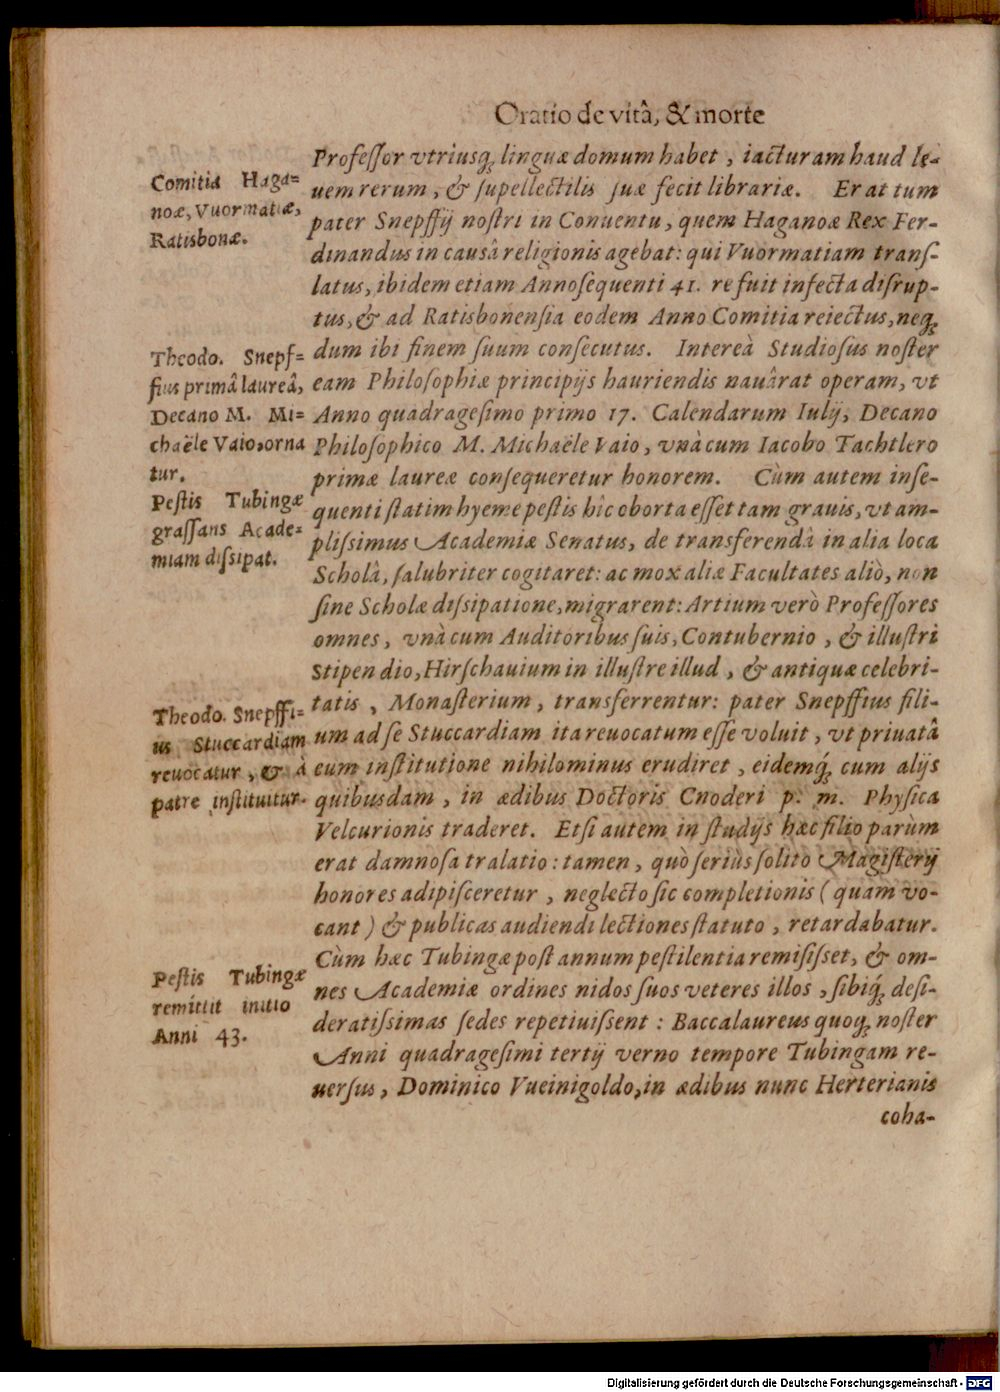 Oratio de vitâ, & morte
Professor vtriusq́; linguæ domum habet, iacturam haud le-
uem rerum, & supellectilis suæ fecit librariæ. Erat tum
pater Snepffij nostri in Conuentu, quem Haganoæ Rex Fer-
dinandus in causâ religionis agebat: qui Vuormatiam trans-
latus, ibidem etiam Anno sequenti 41. re fuit infecta disrup-
tus, & ad Ratisbonensia eodem Anno Comitia reiectus, neq́;
dum ibi finem suum consecutus. Intereà Studiosus noster
eam Philosophiæ principijs hauriendis nauârat operam, vt
Anno quadragesimo primo 17. Calendarum Iulij, Decano
Philosophico M. Michaële Vaio, vnà cum Iacobo Tachtlero
primæ laureæ consequeretur honorem. Cùm autem inse-
quenti statim hyeme pestis hîc oborta esset tam grauis, vt am-
plissimus Academiæ Senatus, de transferendâ in alia loca
Scholâ, salubriter cogitaret: ac mox aliæ Facultates aliò, non
sine Scholæ dissipatione, migrarent: Artium verò Professores
omnes, vnà cum Auditoribus suis, Contubernio, & illustri
Stipendio, Hirschauium in illustre illud, & antiquæ celebri-
tatis, Monasterium, transferrentur: pater Snepffius fili-
um ad se Stuccardiam ita reuocatum esse voluit, vt priuatâ
eum institutione nihilominus erudiret, eidemq́; cum alijs
quibusdam, in ædibus Doctoris Cnoderi p. m. Physica
Velcurionis traderet. Etsi autem in studijs hæc filio parùm
erat damnosa tralatio: tamen, quò seriùs solito Magisterij
honores adipisceretur, neglecto sic completionis (quam vo-
cant) & publicas audiendi lectiones statuto, retardabatur.
Cùm hæc Tubingæ post annum pestilentia remisisset, & om-
nes Academiæ ordines nidos suos veteres illos, sibiq́; desi-
deratissimas sedes repetiuissent: Baccalaureus quoq́; noster
Anni quadragesimi tertij verno tempore Tubingam re-
uersus, Dominico Vueinigoldo, in ædibus nunc Herterianis
coha-
Comitia Haga=
noæ, Vuormatiæ,
Ratisbonæ.
Theodo. Snepf=
fius primâ laureâ,
Decano M. Mi=
chaële Vaio, orna
tur.
Pestis Tubingæ
grassans Acade=
miam dissipat.
Theodo. Snepffi=
us Stuccardiam
reuocatur, & à
patre instituitur.
Pestis Tubingæ
remittit initio
Anni 43.
Digitalisierung gefördert durch die Deutsche Forschungsgemeinschaft - DFG